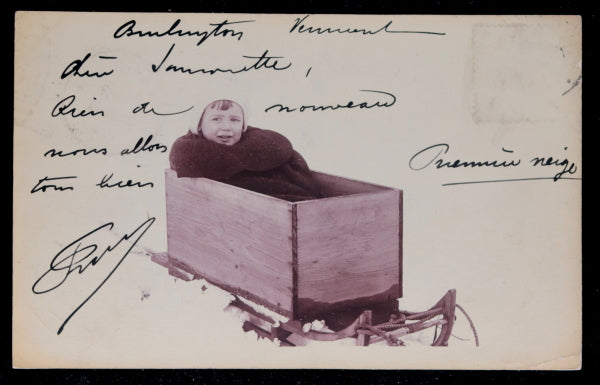 Burlington Vermont
chère
Rien de nouveau
nous allons
tous bien
Première neige